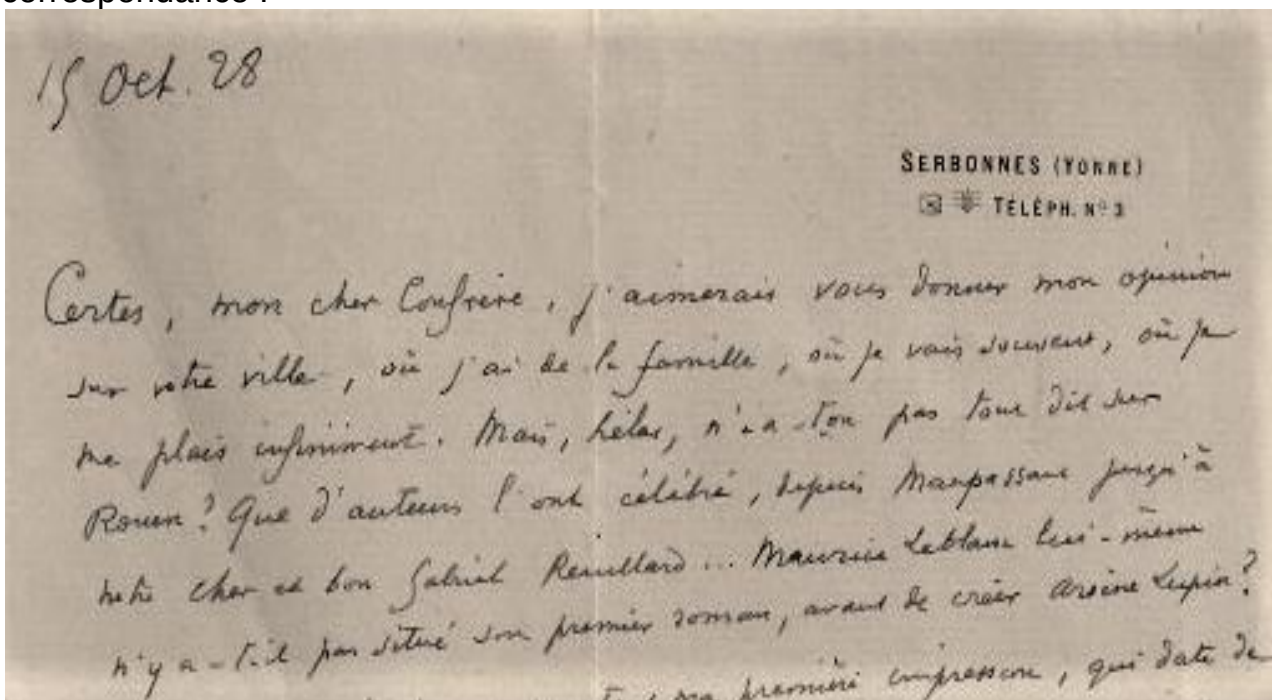 correspondance :
15 Oct. 28
SERBONNES (YONNE)
TÉLÉPH. Nº 3
Certes, mon cher Confrère, j'aimerais vous donner mon opinion
sur votre ville, où j'ai de la famille, où je vais souvent, où je
me plais infiniment. Mais, hélas, n'a-t-on pas tout dit sur
Rouen ? Que d'auteurs l'ont célébré, depuis Maupassant jusqu'à
notre cher et bon Gabriel Reuillard... Maurice Leblanc lui-même
n'y a-t-il pas situé son premier roman, avant de créer Arsène Lupin ?
ma première impression, qui date de